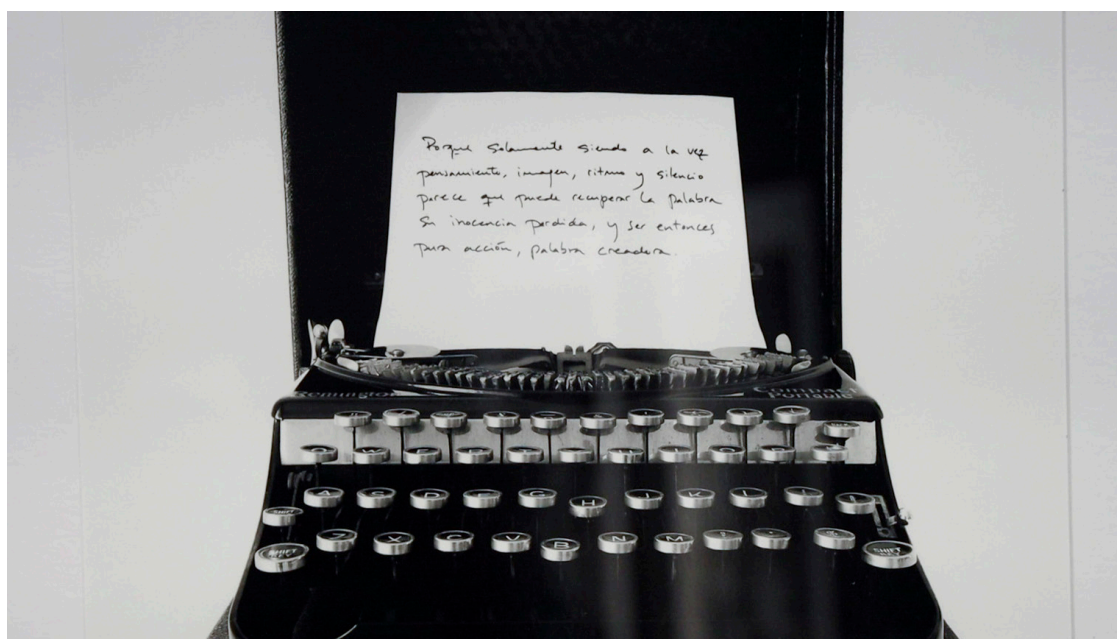 Porque solamente siendo a la vez
pensamiento, imagen, ritmo y silencio
parece que puede recuperar la palabra
su inocencia perdida, y ser entonces
pura acción, palabra creadora.
Remington
Compact
Portable
A S D F G H J K L
SHIFT
Z X C V B N M
SHIFT KEY
SHIFT KEY